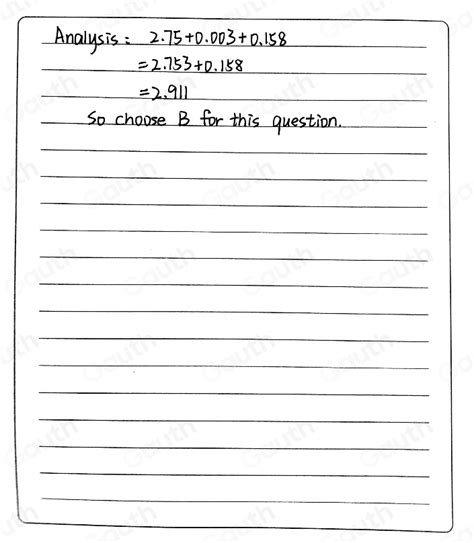 Analysis: 2.75+0.003+0.158
=2.753+0.158
=2.911
So choose B for this question.